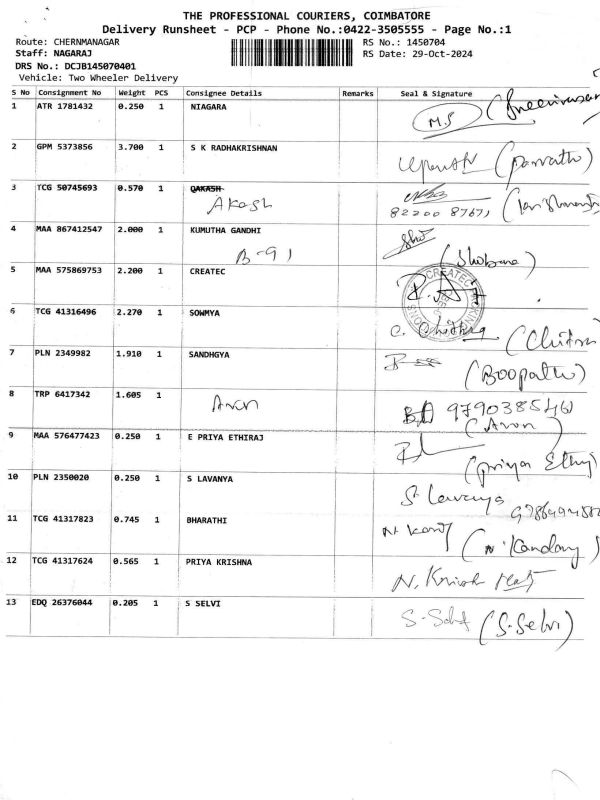 THE PROFESSIONAL COURIERS, COIMBATORE
Delivery Runsheet - PCP - Phone No.:0422-3505555 - Page No.:1
Route: CHERNMANAGAR RS No.: 1450704
Staff: NAGARAJ RS Date: 29-Oct-2024
DRS No.: DCJB145070401
Vehicle: Two Wheeler Delivery
S No Consignment No Weight PCS Consignee Details Remarks Seal & Signature
1 ATR 1781432 0.250 1 NIAGARA M.S (Sreenivasan
2 GPM 5373856 3.700 1 S K RADHAKRISHNAN
3 TCG 50745693 0.570 1 QAKASH
Akash 82200 87671
4 MAA 867412547 2.000 1 KUMUTHA GANDHI
B-91 (Shobana)
5 MAA 575869753 2.200 1 CREATEC CREATEC
6 TCG 41316496 2.270 1 SOWMYA C. Chithra (Chitra
7 PLN 2349982 1.910 1 SANDHGYA (Boopathi)
8 TRP 6417342 1.605 1
Arun 9790385461
(Arun)
9 MAA 576477423 0.250 1 E PRIYA ETHIRAJ (priya Ethiraj
10 PLN 2350020 0.250 1 S LAVANYA S. Lavanya
11 TCG 41317823 0.745 1 BHARATHI
12 TCG 41317624 0.565 1 PRIYA KRISHNA
13 EDQ 26376044 0.205 1 S SELVI (S.Selvi)